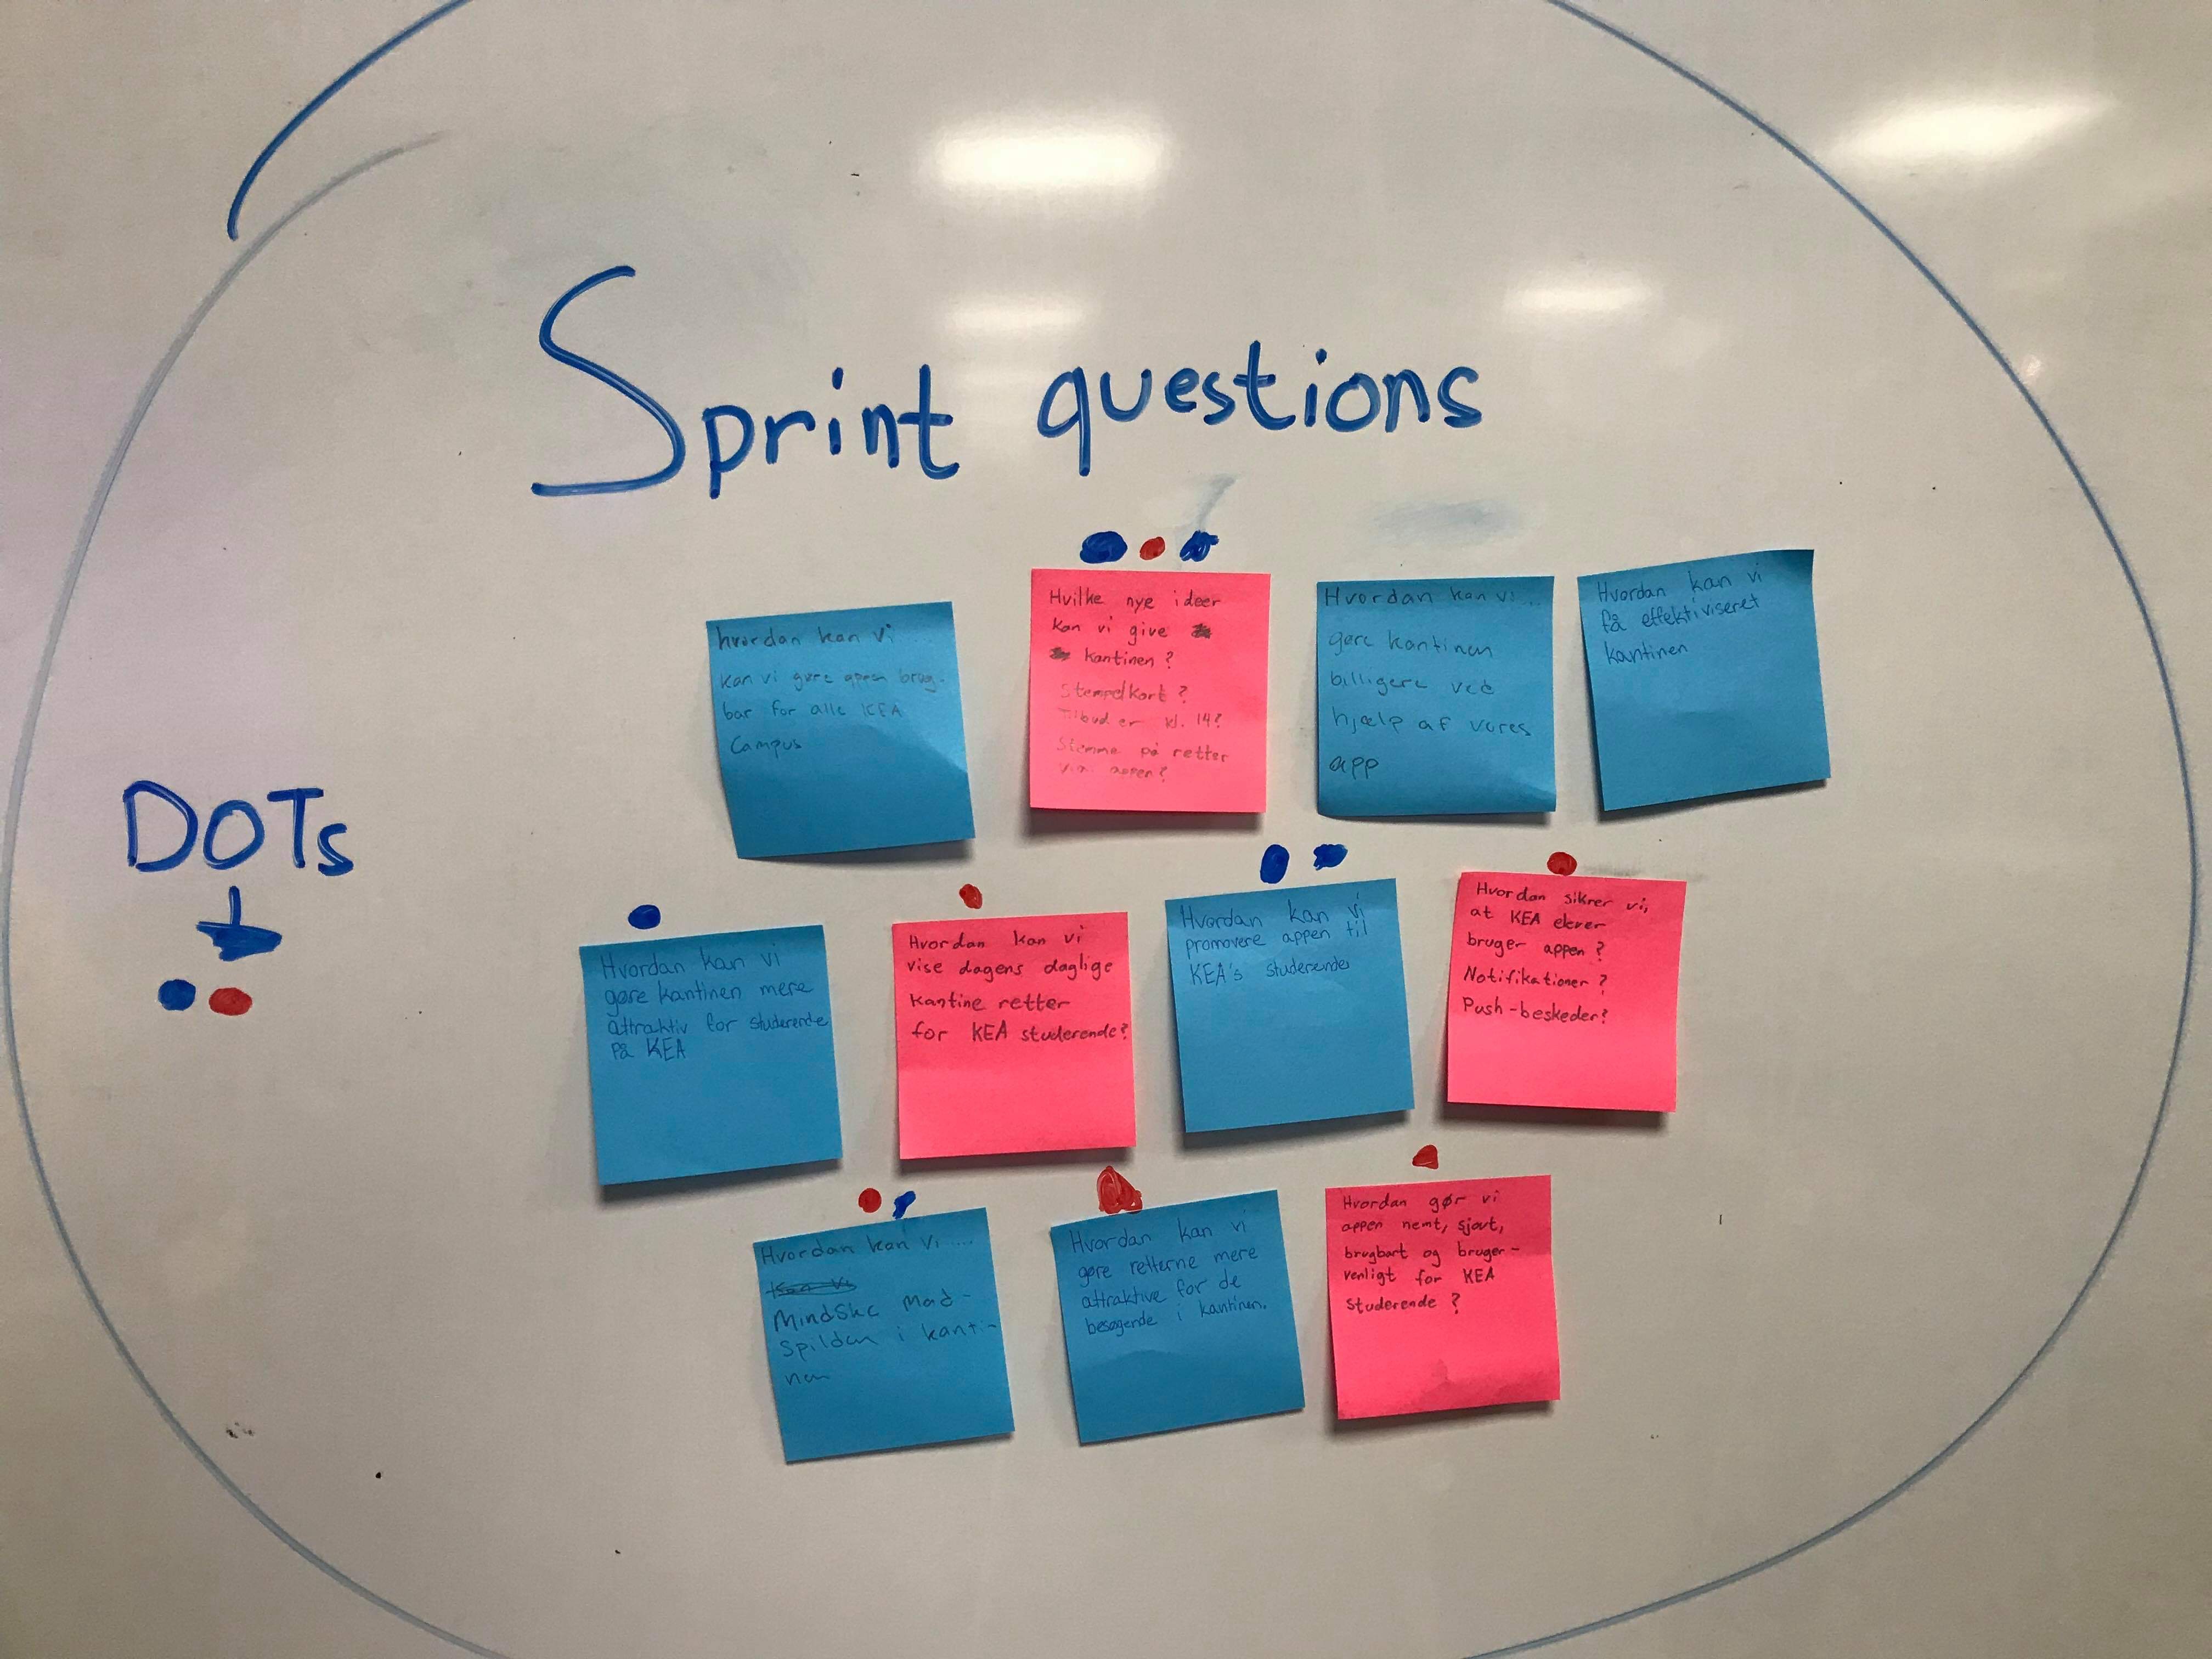 Sprint questions
DOTs
hvordan kan vi ...
kan vi gøre appen brug-
bar for alle KEA
Campus
Hvilke nye ideer
kan vi give
kantinen ?
Stempelkort ?
Tilbud er kl. 14?
Stemme på retter
via appen?
Hvordan kan vi ...
gøre kantinen
billigere ved
hjælp af vores
app
Hvordan kan vi
få effektiviseret
kantinen
Hvordan kan vi
gøre kantinen mere
attraktiv for studerende
På KEA
Hvordan kan vi
vise dagens daglige
kantine retter
for KEA studerende?
Hvordan kan vi
promovere appen til
KEA's studerende
Hvordan sikrer vi,
at KEA elever
bruger appen ?
Notifikationer ?
Push-beskeder?
Hvordan kan vi ....
Kan vi
Mindske Mad-
Spilden i kanti-
nen
Hvordan kan vi
gøre retterne mere
attraktive for de
besøgende i kantinen.
Hvordan gør vi
appen nemt, sjovt,
brugbart og bruger-
venligt for KEA
studerende ?